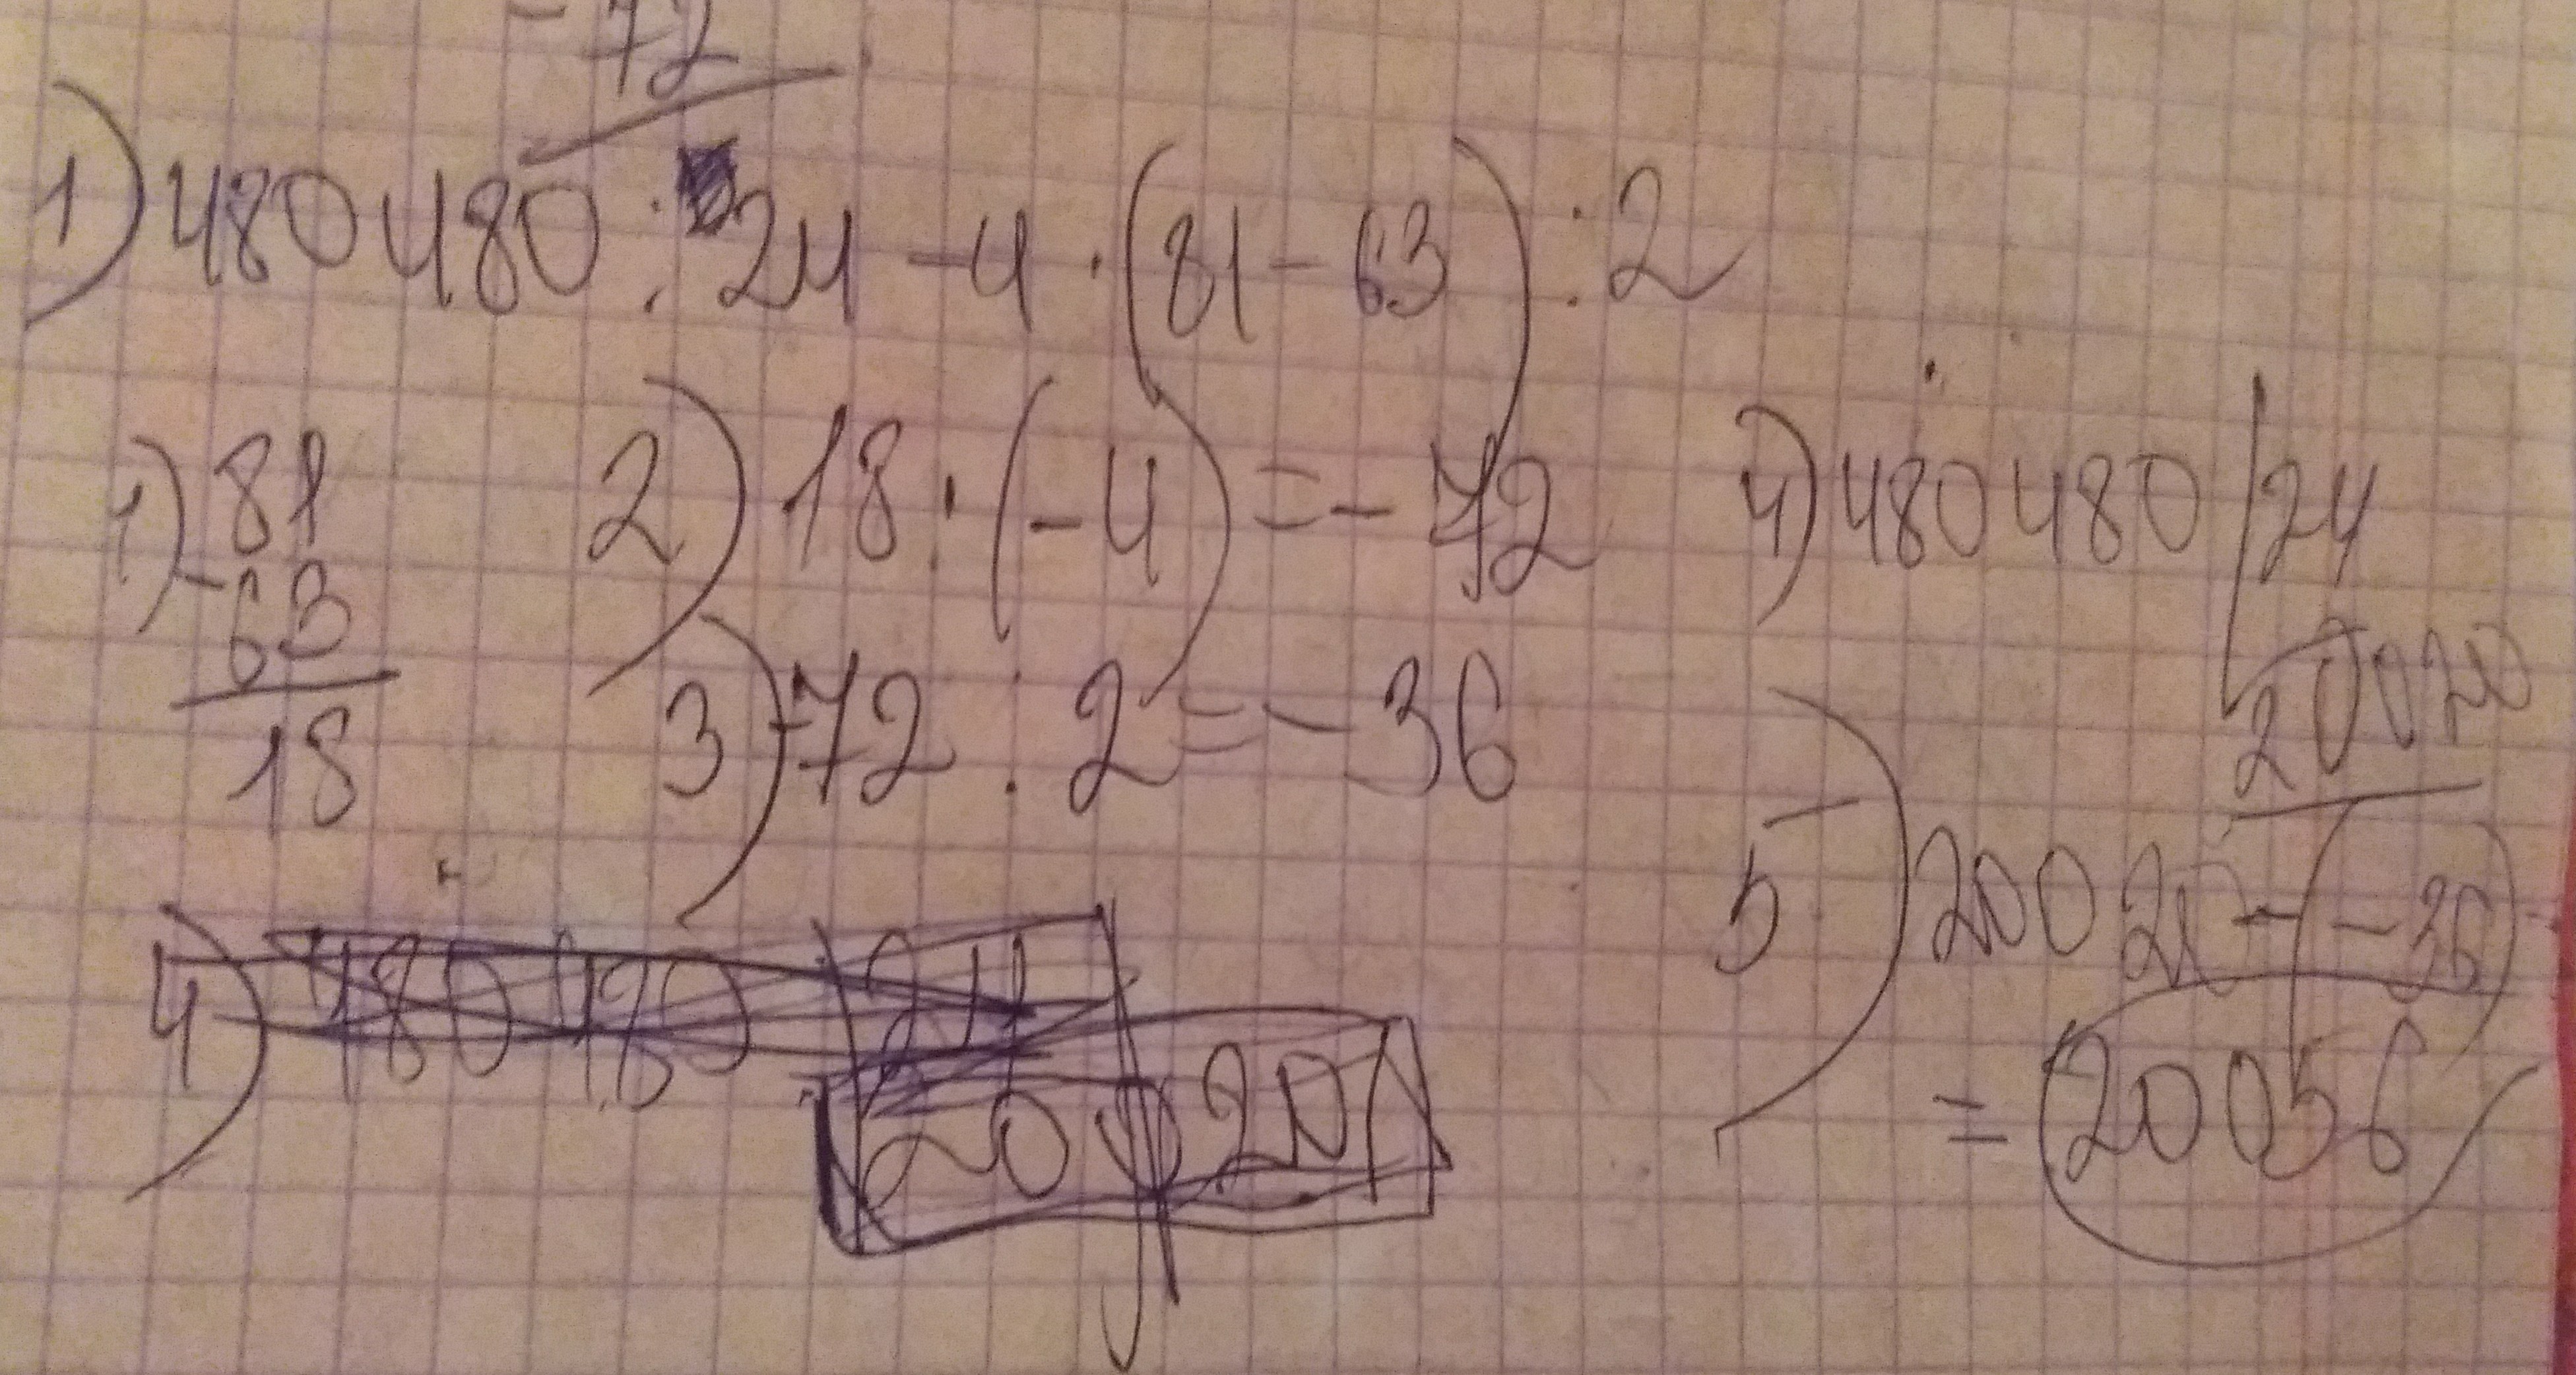 - 72
1) 480480 : 24 - 4 · (81 - 63) : 2
1) 81
- 63
18
2) 18 · (-4) = - 72
3) -72 : 2 = - 36
4) 480480 | 24
20020
4) 480480 24
20020
5) 20020 - (-36)
= 20056